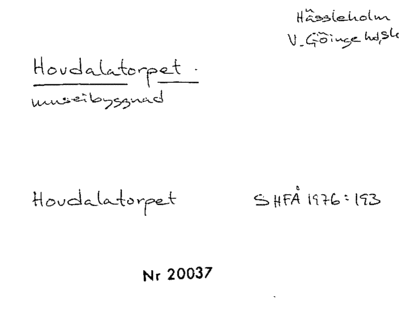 Hässleholm
V. Göinge hd, Sk
Hovdalatorpet.
museibyggnad
Hovdalatorpet SHFÅ 1976:193
Nr 20037